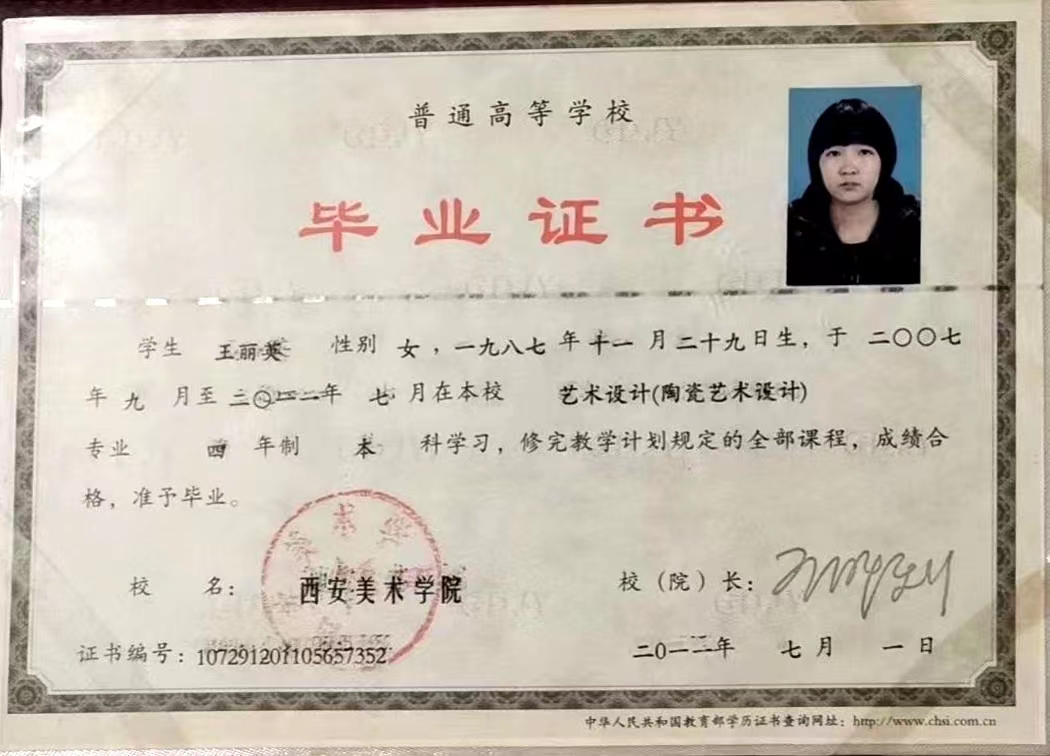 普通高等学校
毕业证书
学生 王丽英 性别 女，一九八七年 十一 月二十九日生，于 二〇〇七
年 九 月至 年 七 月在本校 艺术设计(陶瓷艺术设计)
专业 四 年制 本 科学习，修完教学计划规定的全部课程，成绩合
格，准予毕业。
校 名：西安美术学院 校（院）长：
证书编号：107291201105657352 二0一二年 七 月 一 日
中华人民共和国教育部学历证书查询网址：http://www.chsi.com.cn